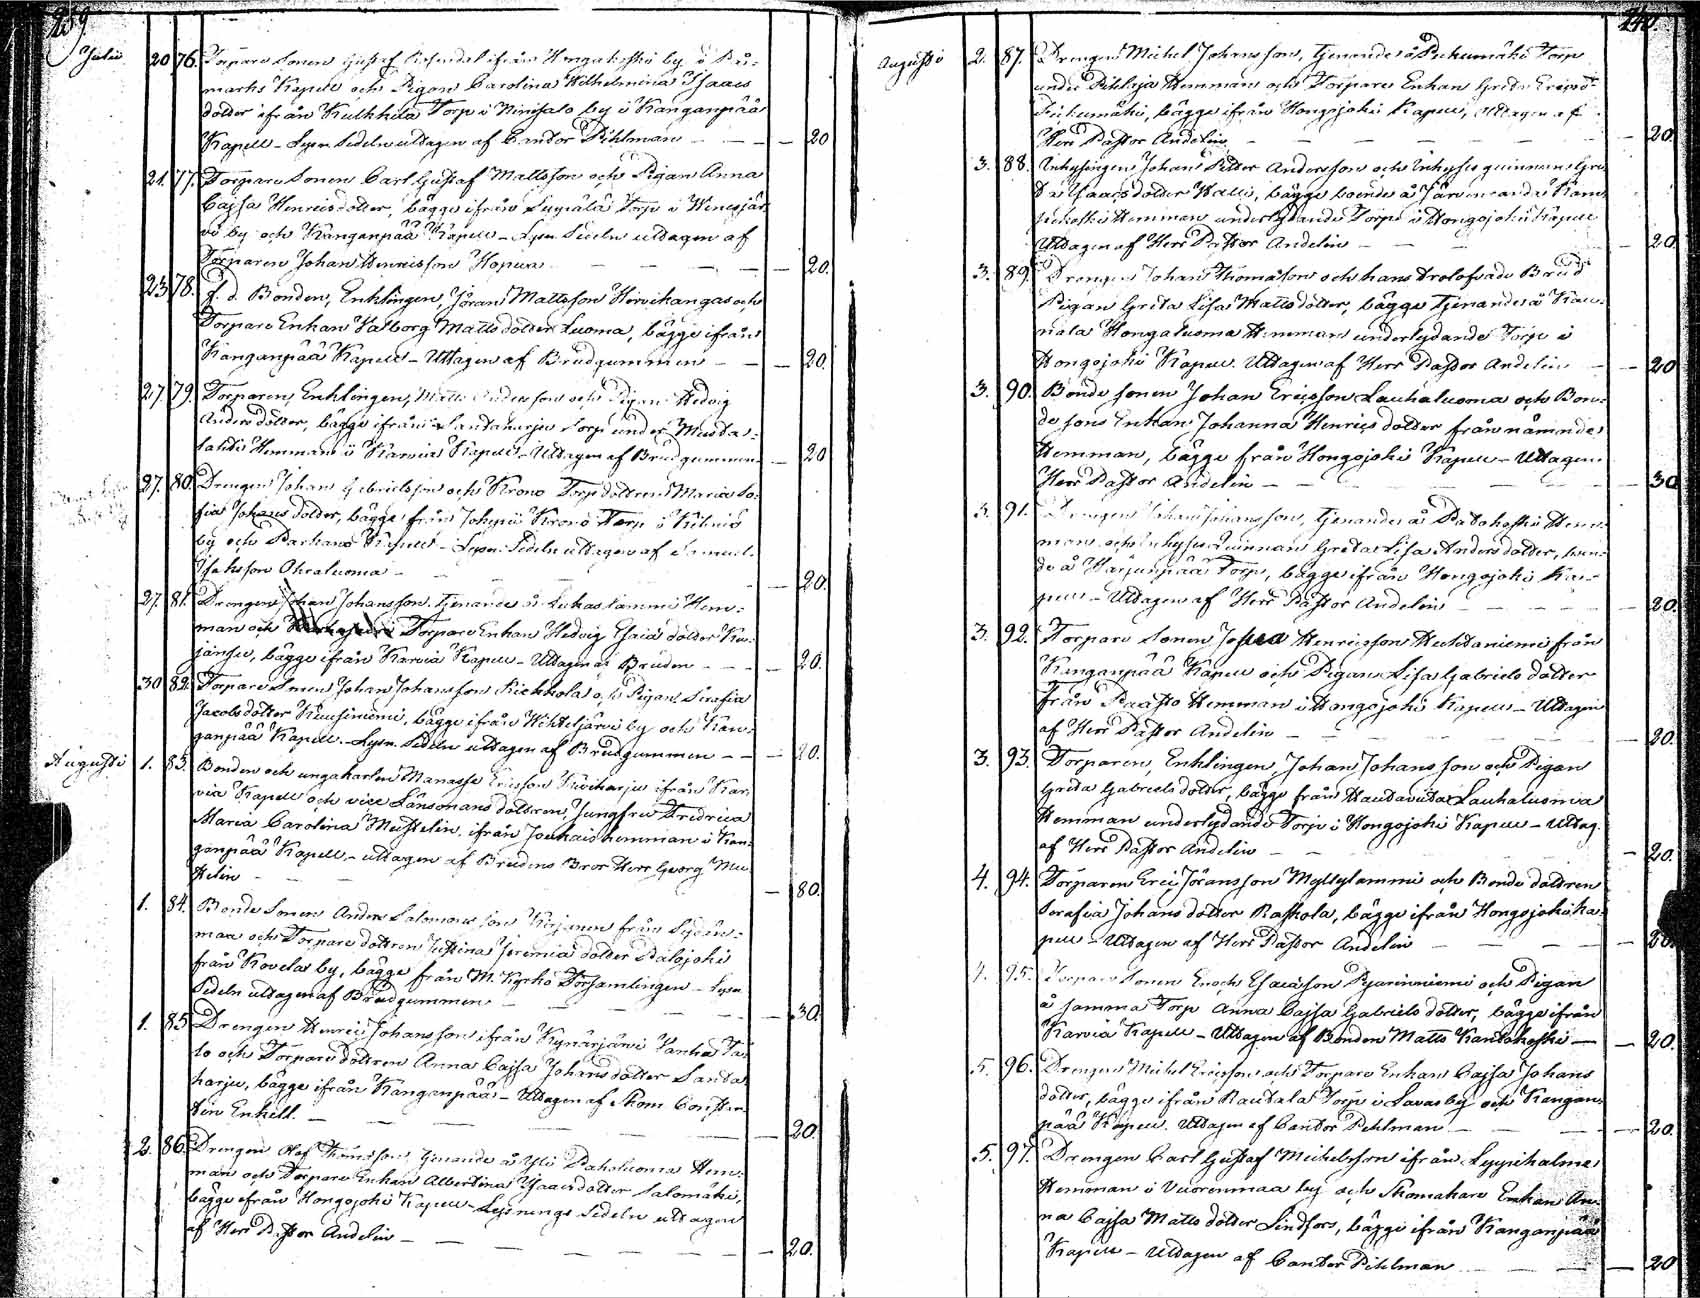 239.
Julii 20 76. Torpare Sonen Gustaf ifrån Hongakoski by o
marks Kapell och Pigan Carolina Wilhelmina Isaacs
dotter ifrån Kulkkila Torp i Niinisalo by i Kanganpää
Kapell – Lysn. Sedeln uttagen af Cantor Pihlman — 20
21. 77. Torpare Sonen Carl Gustaf Mattsson och Pigan Anna
Cajsa Henricsdotter, bägge ifrån Torp i Wenesjär-
vi by och Kanganpää Kapell – Lysn. Sedeln uttagen af
Torparen Johan Henricsson — 20.
23. 78. f. d. Bonden, Enklingen, Jöran Mattsson Hirvikangas och
Torpare Enkan Valborg Mattsdotter Luoma, bägge ifrån
Kanganpää Kapell – Uttagen af Brudgummen — 20.
27. 79. Torparen, Enklingen, Matts Andersson och Pigan Hedvig
Andersdotter, bägge ifrån Santaharju Torp under Musta-
lahti Hemman i Karvia Kapell – Uttagen af Brudgummen — 20
27. 80. Drengen Johan Gabrielsson och Krono Torpdottren Maria So-
fia Johansdotter, bägge från Krono Torp i Kihniö
by och Parkano Kapell – Lysn. Sedeln uttagen af Samuel
Isaksson Ohraluoma — 20.
27. 81. Drengen Johan Johansson, tjenande å Lukaslammi Hem-
man och Torpare Enkan Hedvig Esaiædotter
bägge ifrån Karvia Kapell – Uttagen af Bruden — 20.
30. 82. Torpare Sonen Johan Johansson och Pigan Serafia
Jacobsdotter Kuusiniemi, bägge ifrån Wihteljärvi by och Kan-
ganpää Kapell – Lysn. Sedeln uttagen af Brudgummen — 20.
Augusti 1. 83. Bonden och ungakarlen Manasse Ericsson Kiviharju ifrån Kar-
via Kapell och vice Länsmans dottren, Jungfru Fredrica
Maria Carolina Mustelin, ifrån hemman i Kan-
ganpää Kapell – uttagen af Brudens Bror Herr Georg Mus-
telin — 80.
1. 84. Bonde Sonen Anders Salomonsson från
maa och Torpare dottren Justina Jeremiædotter Palojoki
från Kovela by, bägge från M. Kyrko Församlingen – Lysn.
Sedeln uttagen af Brudgummen — 30.
1. 85. Drengen Henric Johansson ifrån Kynäsjärvi
lo och Torpare dottren Anna Cajsa Johansdotter Santa-
harju, bägge ifrån Kanganpää – Uttagen af
Enkell. — 20.
2. 86. Drengen Olof Thomsson, tjenande å Yli Pahaluoma Hem-
man och Torpare Enkan Albertina Isaacsdotter Salomäki,
bägge ifrån Hongojoki Kapell – Lysnings Sedeln uttagen
af Herr Pastor Andelin — 20.
240.
Augusti 2. 87. Drengen Michel Johansson, tjenande å Torp
under Pihlaja Hemman och Torpare Enkan Greta
bägge ifrån Hongojoki Kapell, Uttagen af
Herr Pastor Andelin — 20.
3. 88. Inhysingen Johan Petter Andersson och Inhyses quinnan Gre-
ta Isaacsdotter bägge boende å
Hemman underlydande Torp i Hongojoki Kapell
Uttagen af Herr Pastor Andelin — 20.
3. 89. Drengen Johan Thomasson och hans trolofvade Brud
Pigan Greta Lisa Mattsdotter, bägge tjenande å
Hongaluoma Hemman underlydande Torp i
Hongojoki Kapell. Uttagen af Herr Pastor Andelin — 20
3. 90. Bonde sonen Johan Ericsson Lauhaluoma och Bon-
de sons Enkan Johanna Henricsdotter från nämnde
Hemman, bägge från Hongojoki Kapell – Uttagen
Herr Pastor Andelin — 30
3. 91. Drengen Johan Johansson, tjenande å Patokoski Hem-
man och Inhyses Quinnan Greta Lisa Andersdotter, boen-
de å Harjunpää Torp, bägge ifrån Hongojoki Ka-
pell – Uttagen af Herr Pastor Andelin — 20.
3. 92. Torpare Sonen Josua Henricsson Huhtaniemi från
Kanganpää Kapell och Pigan Lisa Gabrielsdotter
från Paasto Hemman i Hongojoki Kapell – Uttagen
af Herr Pastor Andelin — 20.
3. 93. Torparen, Enklingen, Johan Johansson och Pigan
Greta Gabrielsdotter, bägge från Lauhaluoma
Hemman underlydande Torp i Hongojoki Kapell – Uttag.
af Herr Pastor Andelin — 20.
4. 94. Torparen Eric Jöransson Myllylammi och Bonde dottren
Serafia Johansdotter Raskola, bägge ifrån Hongojoki Ka-
pell – Uttagen af Herr Pastor Andelin — 20.
4. 95. Torpare Sonen Enoch Esaiæsson och Pigan
å samma Torp Anna Cajsa Gabrielsdotter, bägge ifrån
Karvia Kapell – Uttagen af Bonden Matts Kantokoski — 20.
5. 96. Drengen Michel Ericsson och Torpare Enkan Cajsa Johans
dotter, bägge ifrån Rautala Torp i by och Kangan-
pää Kapell. Uttagen af Cantor Pihlman — 20.
5. 97. Drengen Carl Gustaf Michelsson ifrån
Hemman i Vuorenmaa by och Skomakare Enkan An-
na Cajsa Mattsdotter Lindfors, bägge ifrån Kanganpää
Kapell – Uttagen af Cantor Pihlman — 20